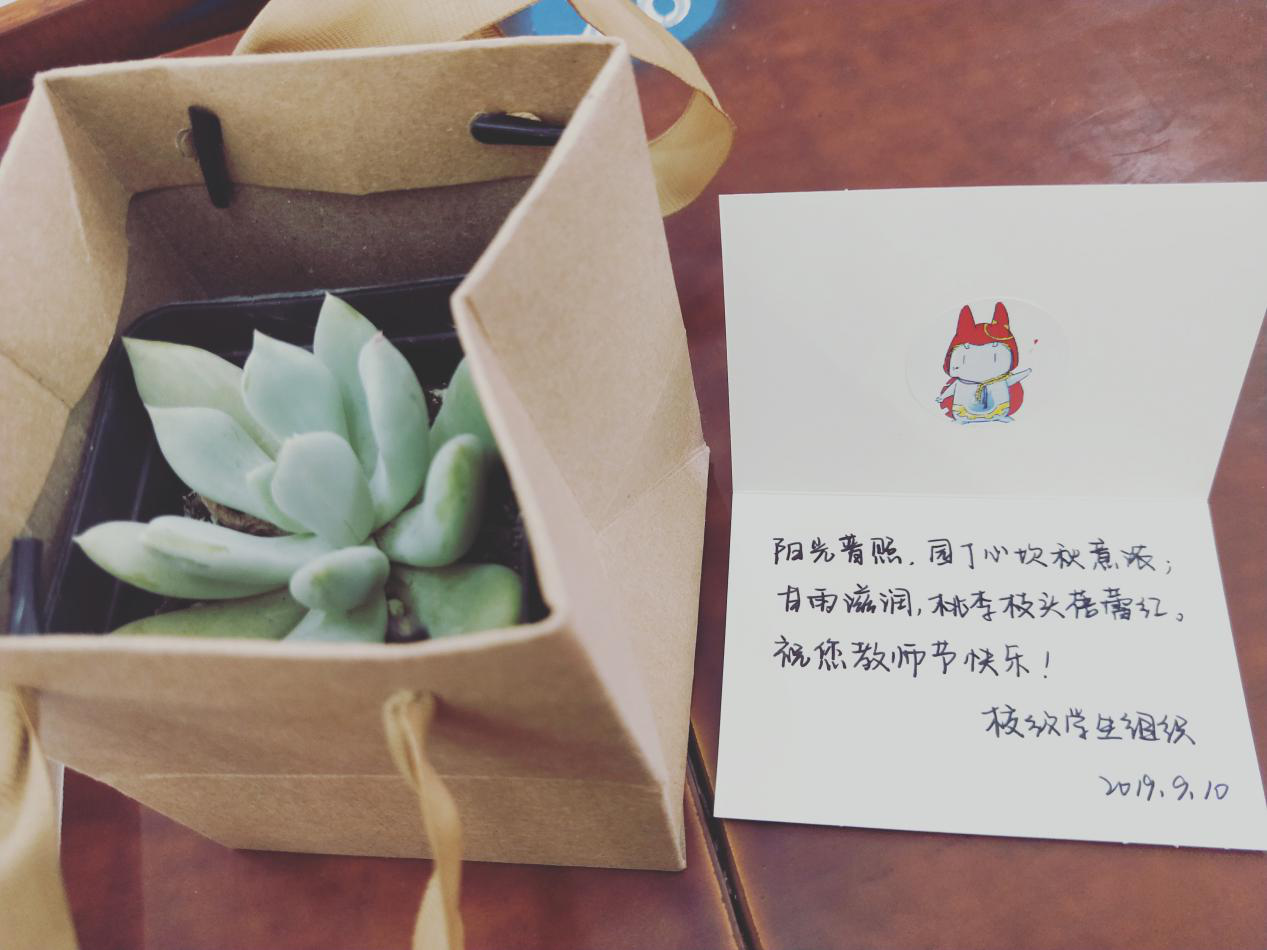 阳光普照，园丁心坎秋意浓；
甘雨滋润，桃李枝头蓓蕾红。
祝您教师节快乐！
校级学生组织
2019.9.10